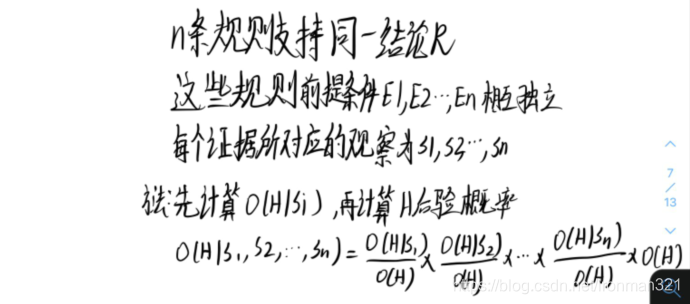 n条规则支持同一结论R
这些规则前提条件E1,E2…,En相互独立
每个证据所对应的观察为S1,S2…,Sn
法:先计算O(H|Si),再计算H后验概率
O(H|S1,S2,…,Sn)=O(H|S1)/O(H)×O(H|S2)/O(H)×…×O(H|Sn)/O(H)×O(H)
7
13
https://blog.csdn.net/ironman321